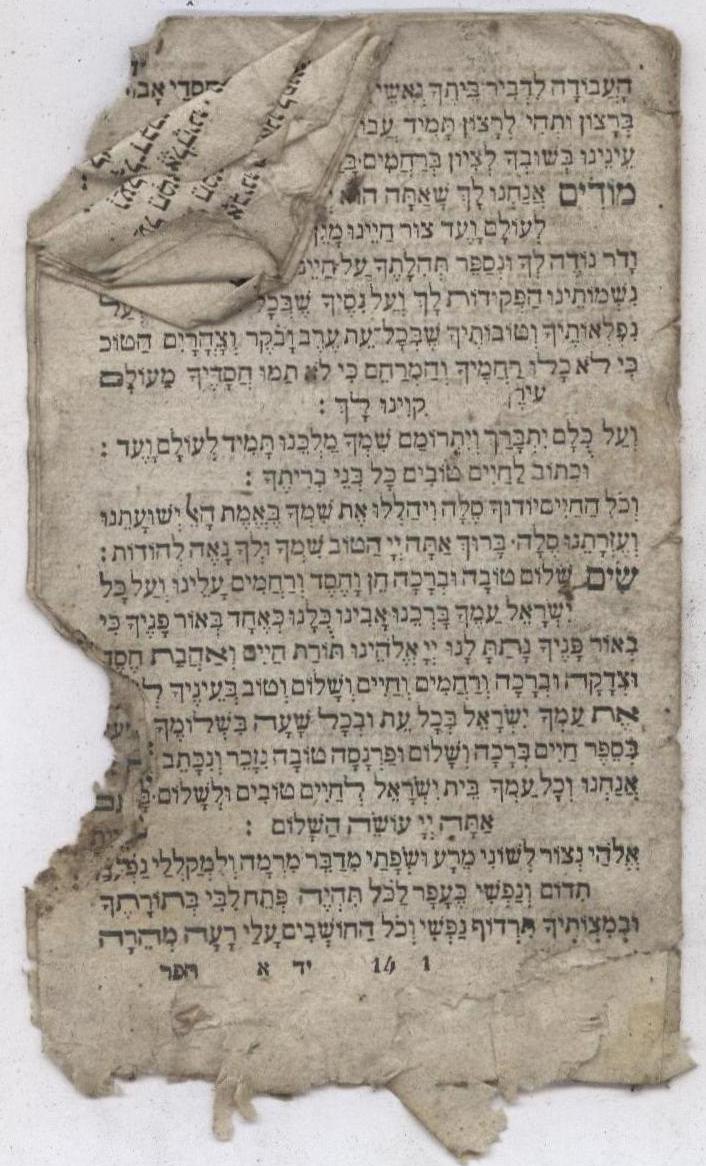 הָעֲבוֹדָה לִדְבִיר בֵּיתֶךָ וְאִשֵּׁי
בְּרָצוֹן וּתְהִי לְרָצוֹן תָּמִיד
עֵינֵינוּ בְּשׁוּבְךָ לְצִיּוֹן בְּרַחֲמִים
מוֹדִים אֲנַחְנוּ לָךְ שָׁאַתָּה הוּא
לְעוֹלָם וָעֶד צוּר חַיֵּינוּ מָגֵן
וָדֹר נוֹדֶה לְךָ וּנְסַפֵּר תְּהִלָּתֶךָ עַל חַיֵּינוּ
נִשְׁמוֹתֵינוּ הַפְּקִידוֹת לָךְ וְעַל נִסֶּיךָ שֶׁבְּכָל וְעַל
נִפְלְאוֹתֶיךָ וְטוֹבוֹתֶיךָ שֶׁבְּכָל עֵת עֶרֶב וָבֹקֶר וְצָהֳרָיִם הַטּוֹב
כִּי לֹא כָלוּ רַחֲמֶיךָ וְהַמְרַחֵם כִּי לֹא תַמּוּ חֲסָדֶיךָ מֵעוֹלָם
קִוִּינוּ לָךְ :
וְעַל כֻּלָּם יִתְבָּרַךְ וְיִתְרוֹמַם שִׁמְךָ מַלְכֵּנוּ תָּמִיד לְעוֹלָם וָעֶד :
וּכְתוֹב לְחַיִּים טוֹבִים כָּל בְּנֵי בְרִיתֶךָ :
וְכֹל הַחַיִּים יוֹדוּךָ סֶּלָה וִיהַלְלוּ אֶת שִׁמְךָ בֶּאֱמֶת הָאֵל יְשׁוּעָתֵנוּ
וְעֶזְרָתֵנוּ סֶלָה בָּרוּךְ אַתָּה יְיָ הַטּוֹב שִׁמְךָ וּלְךָ נָאֶה לְהוֹדוֹת :
שִׂים שָׁלוֹם טוֹבָה וּבְרָכָה חֵן וָחֶסֶד וְרַחֲמִים עָלֵינוּ וְעַל כָּל
יִשְׂרָאֵל עַמֶּךָ בָּרְכֵנוּ אָבִינוּ כֻּלָּנוּ כְּאֶחָד בְּאוֹר פָּנֶיךָ כִּי
בְאוֹר פָּנֶיךָ נָתַתָּ לָנוּ יְיָ אֱלֹהֵינוּ תּוֹרַת חַיִּים וְאַהֲבַת חֶסֶד
וּצְדָקָה וּבְרָכָה וְרַחֲמִים וְחַיִּים וְשָׁלוֹם וְטוֹב בְּעֵינֶיךָ
אֶת עַמְּךָ יִשְׂרָאֵל בְּכָל עֵת וּבְכָל שָׁעָה בִּשְׁלוֹמֶךָ
בְּסֵפֶר חַיִּים בְּרָכָה וְשָׁלוֹם וּפַרְנָסָה טוֹבָה נִזָּכֵר וְנִכָּתֵב
אֲנַחְנוּ וְכָל עַמְּךָ בֵּית יִשְׂרָאֵל לְחַיִּים טוֹבִים וּלְשָׁלוֹם
אַתָּה יְיָ עוֹשֵׂה הַשָּׁלוֹם :
אֱלֹהַי נְצוֹר לְשׁוֹנִי מֵרָע וּשְׂפָתַי מִדַּבֵּר מִרְמָה וְלִמְקַלְלַי נַפְשִׁי
תִדּוֹם וְנַפְשִׁי כֶּעָפָר לַכֹּל תִּהְיֶה פְּתַח לִבִּי בְּתוֹרָתֶךָ
וּבְמִצְוֹתֶיךָ תִּרְדּוֹף נַפְשִׁי וְכֹל הַחוֹשְׁבִים עָלַי רָעָה מְהֵרָה
1 14 יד א הפר